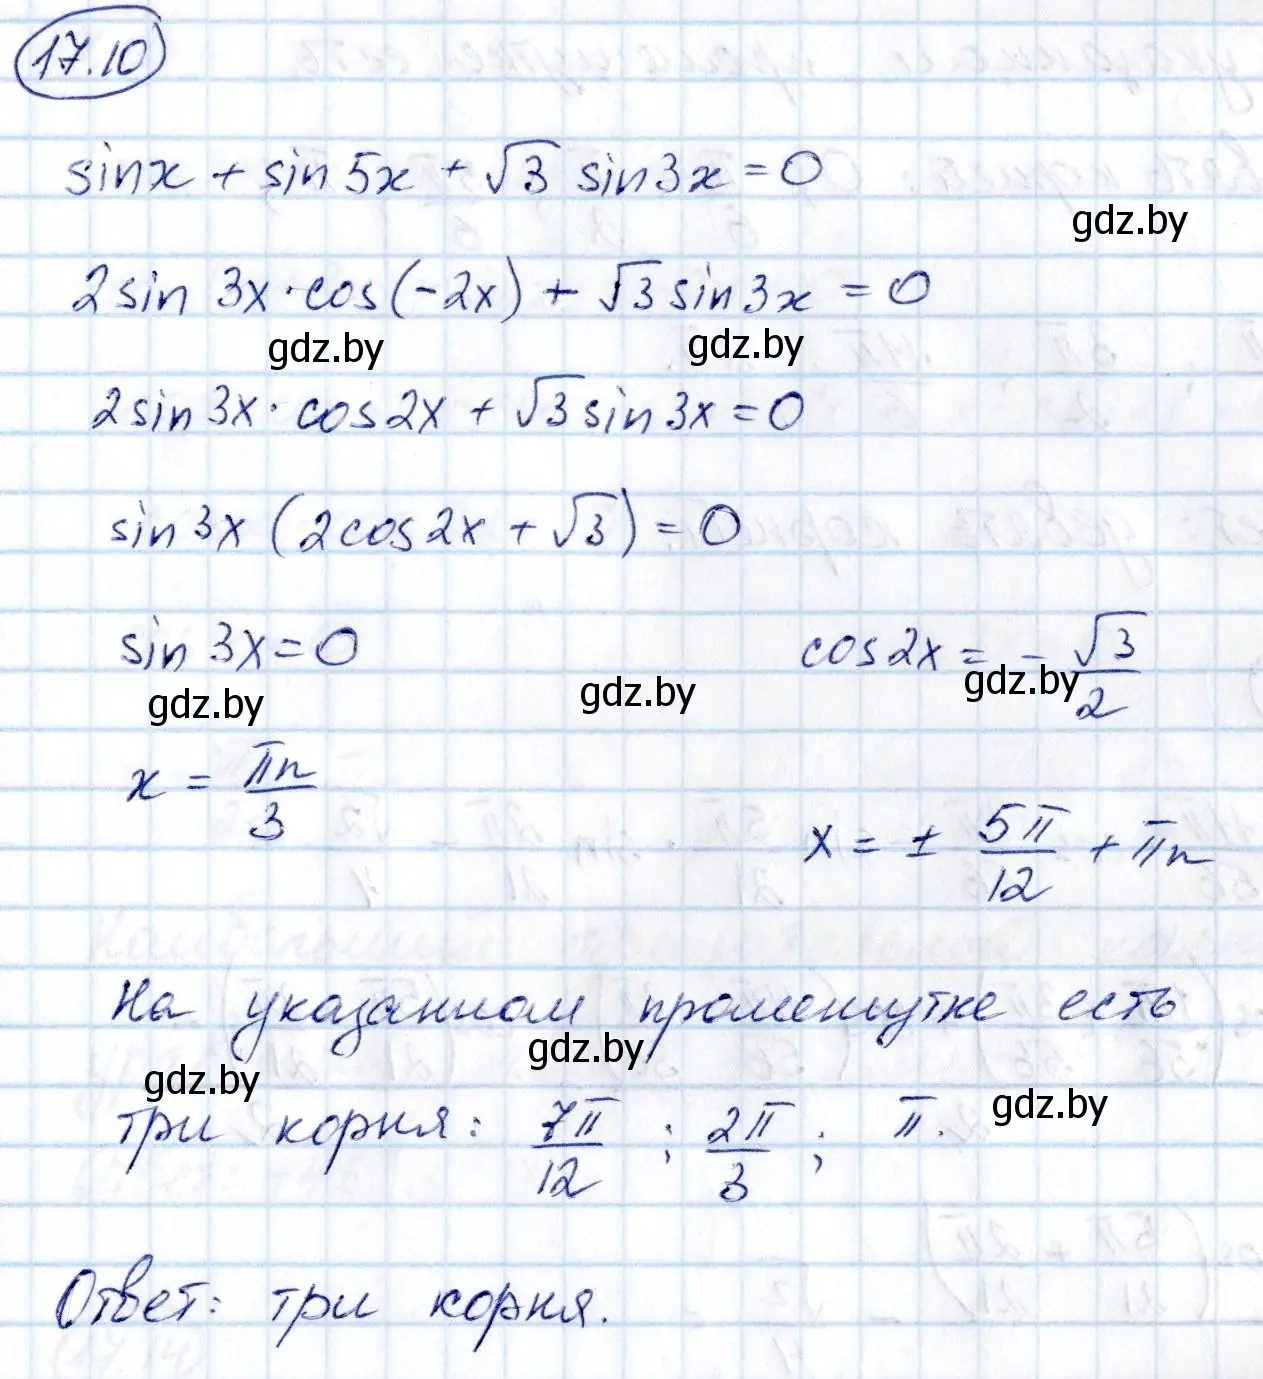 17.10
sinx + sin5x + √3 sin3x = 0
gdz.by
2sin 3x·cos(-2x) + √3 sin3x = 0
gdz.by gdz.by
2sin3x·cos2x + √3 sin3x = 0
sin3x (2cos2x + √3) = 0
sin3x = 0 cos2x = - √3/2
gdz.by gdz.by gdz.by
x = πn/3
x = ± 5π/12 + πn
На указанном промежутке есть
gdz.by gdz.by
три корня: 7π/12 ; 2π/3 ; π.
gdz.by
Ответ: три корня.